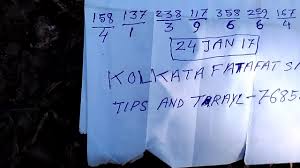 158 137 238 117 358 259 167
4 1 3 9 6 6 4
24 JAN 17
KOLKATA FATAFAT
TIPS AND TRAYL-7685